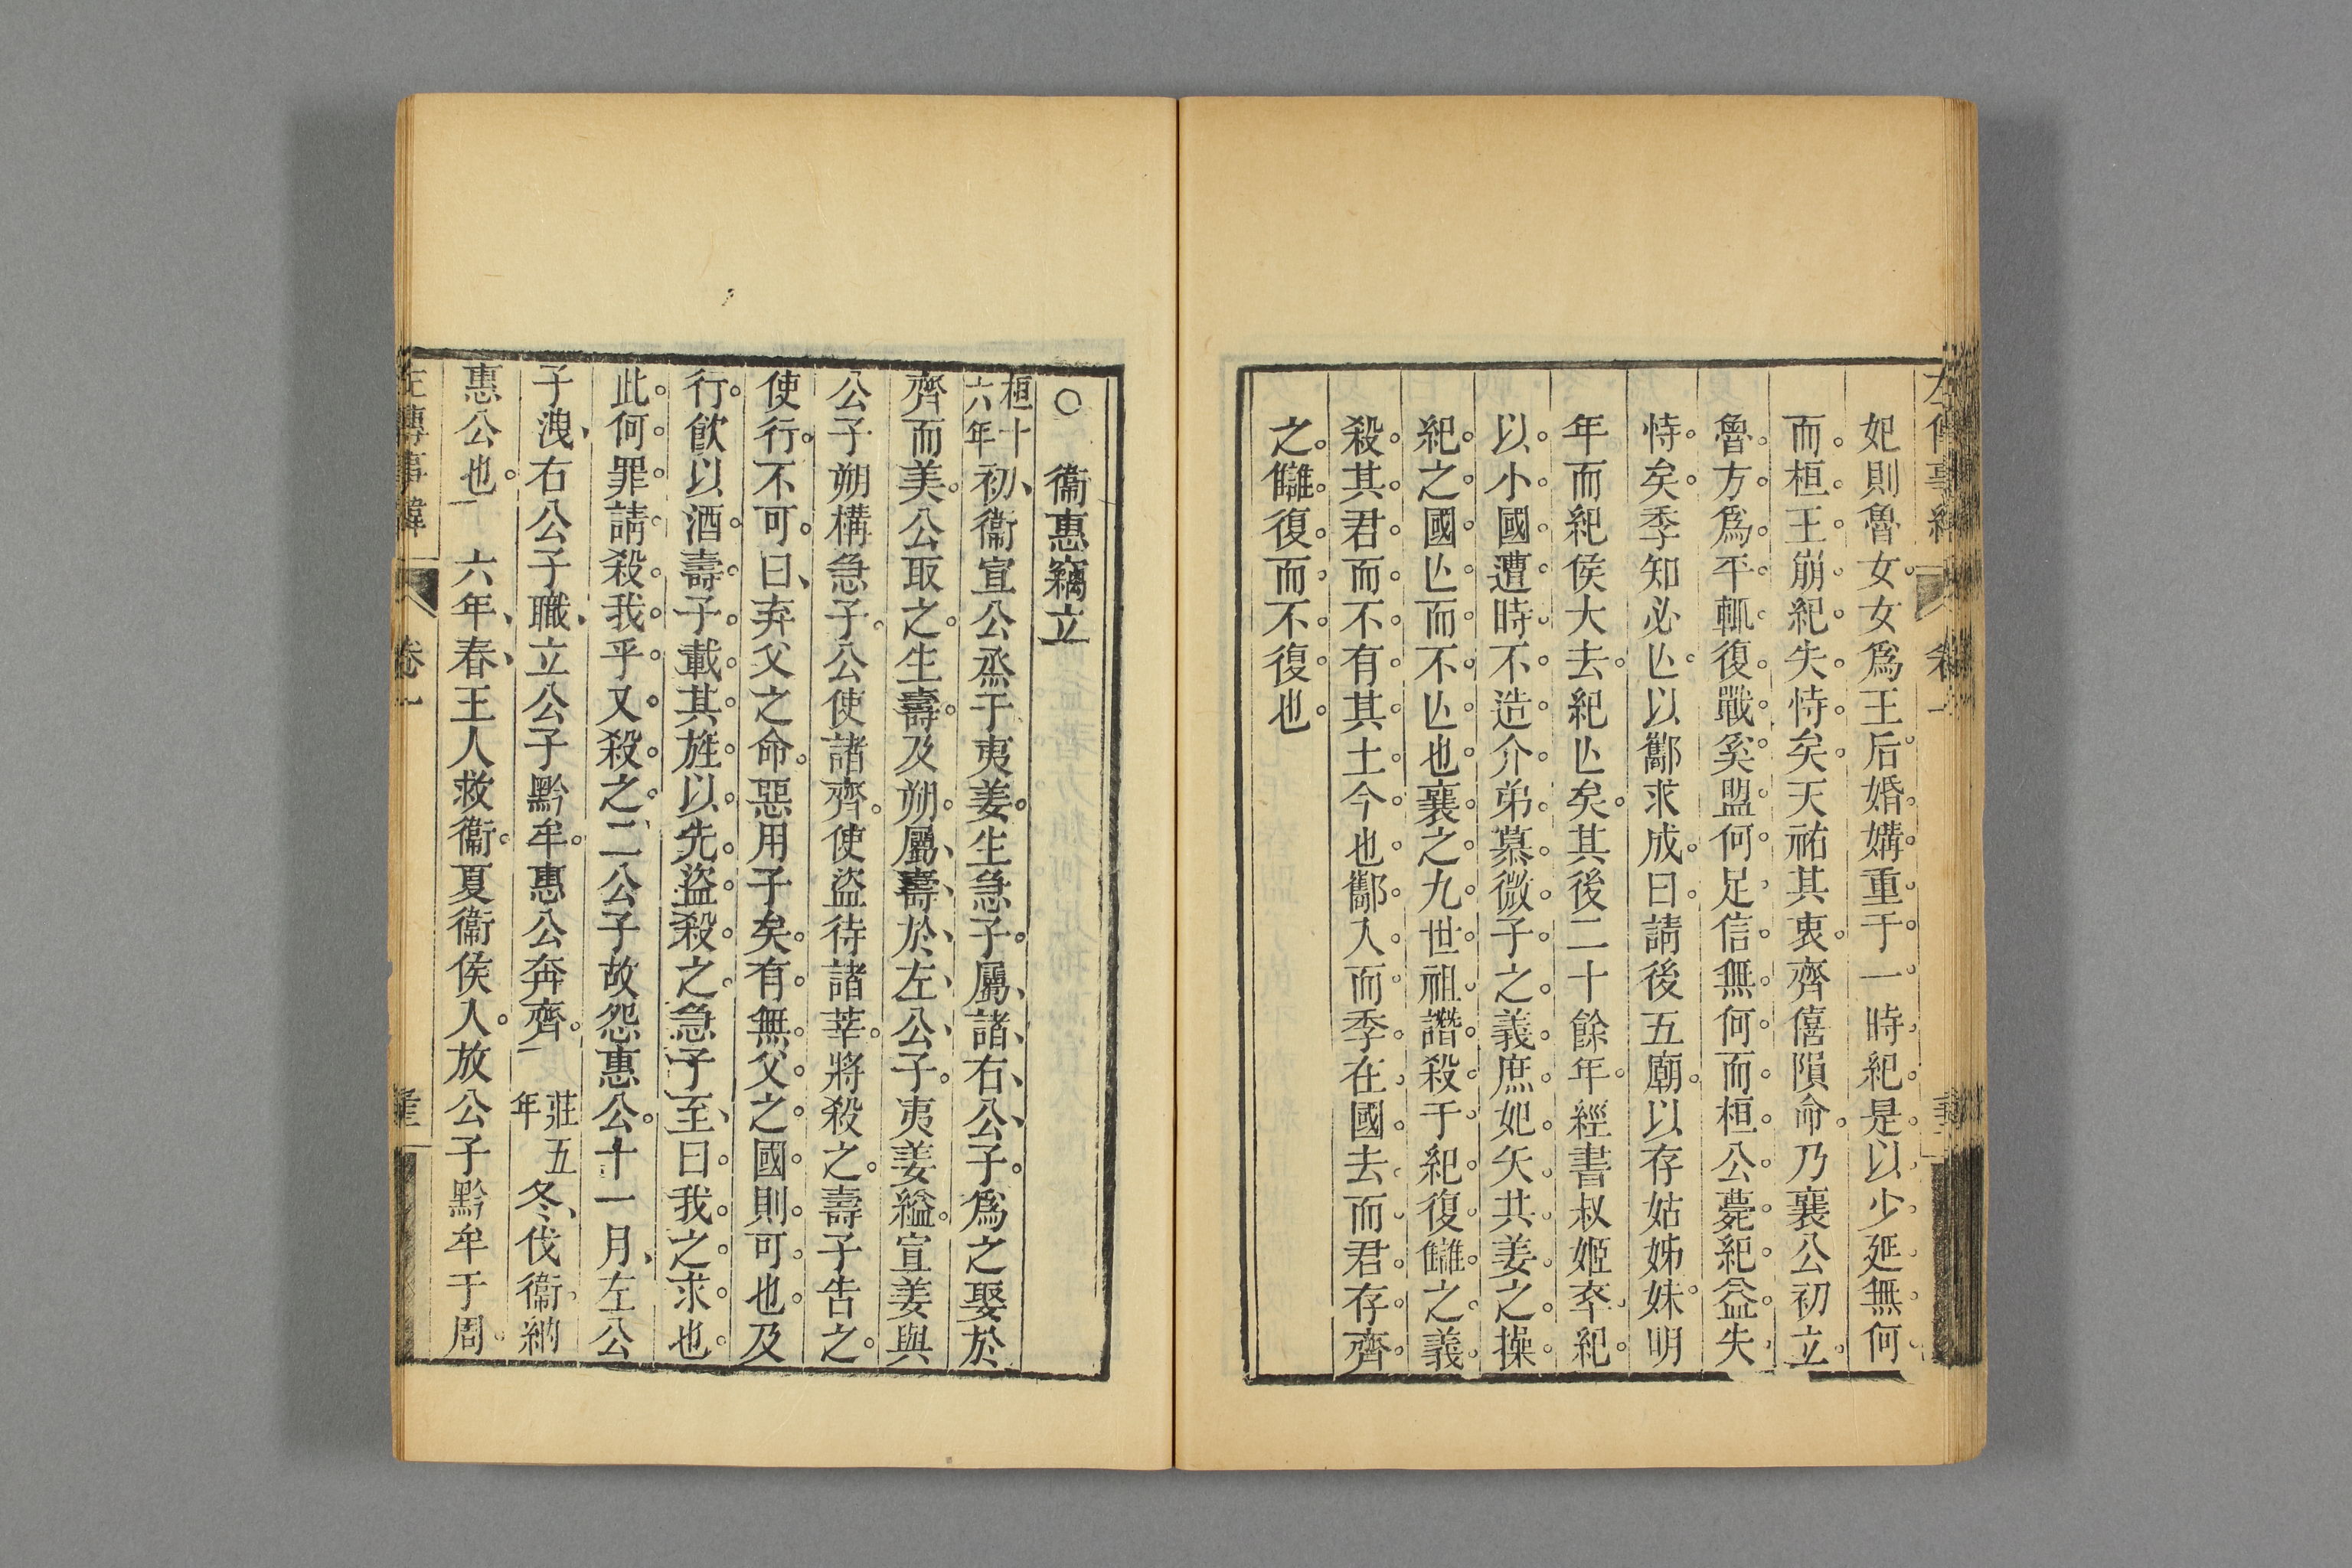 妃則魯女女爲王后婚媾重于一時紀是以少延無何
而桓王崩紀失恃矣天祐其衷齊僖隕命乃襄公初立
魯方爲平輒復戰奚盟何足信無何而桓公薨紀益失
恃矣季知必亾以酅求成曰請後五廟以存姑姊妹明
年而紀侯大去紀亾矣其後二十餘年經書叔姬卒紀
以小國遭時不造介弟慕微子之義庶妃矢共姜之操
紀之國亾而不亾也襄之九世祖譖殺于紀復讎之義
殺其君而不有其土今也酅入而季在國去而君存齊
之讎復而不復也
○衞惠竊立
桓十六年初衞宣公烝于夷姜生急子屬諸右公子爲之娶於
齊而美公取之生壽及朔屬壽於左公子夷姜縊宣姜與
公子朔構急子公使諸齊使盜待諸莘將殺之壽子告之
使行不可曰弃父之命惡用子矣有無父之國則可也及
行飮以酒壽子載其旌以先盜殺之急子至曰我之求也
此何罪請殺我乎又殺之二公子故怨惠公十一月左公
子洩右公子職立公子黔牟惠公奔齊 莊五年冬伐衞納
惠公也 六年春王人救衞夏衞侯入放公子黔牟于周
左傳事緯 卷一